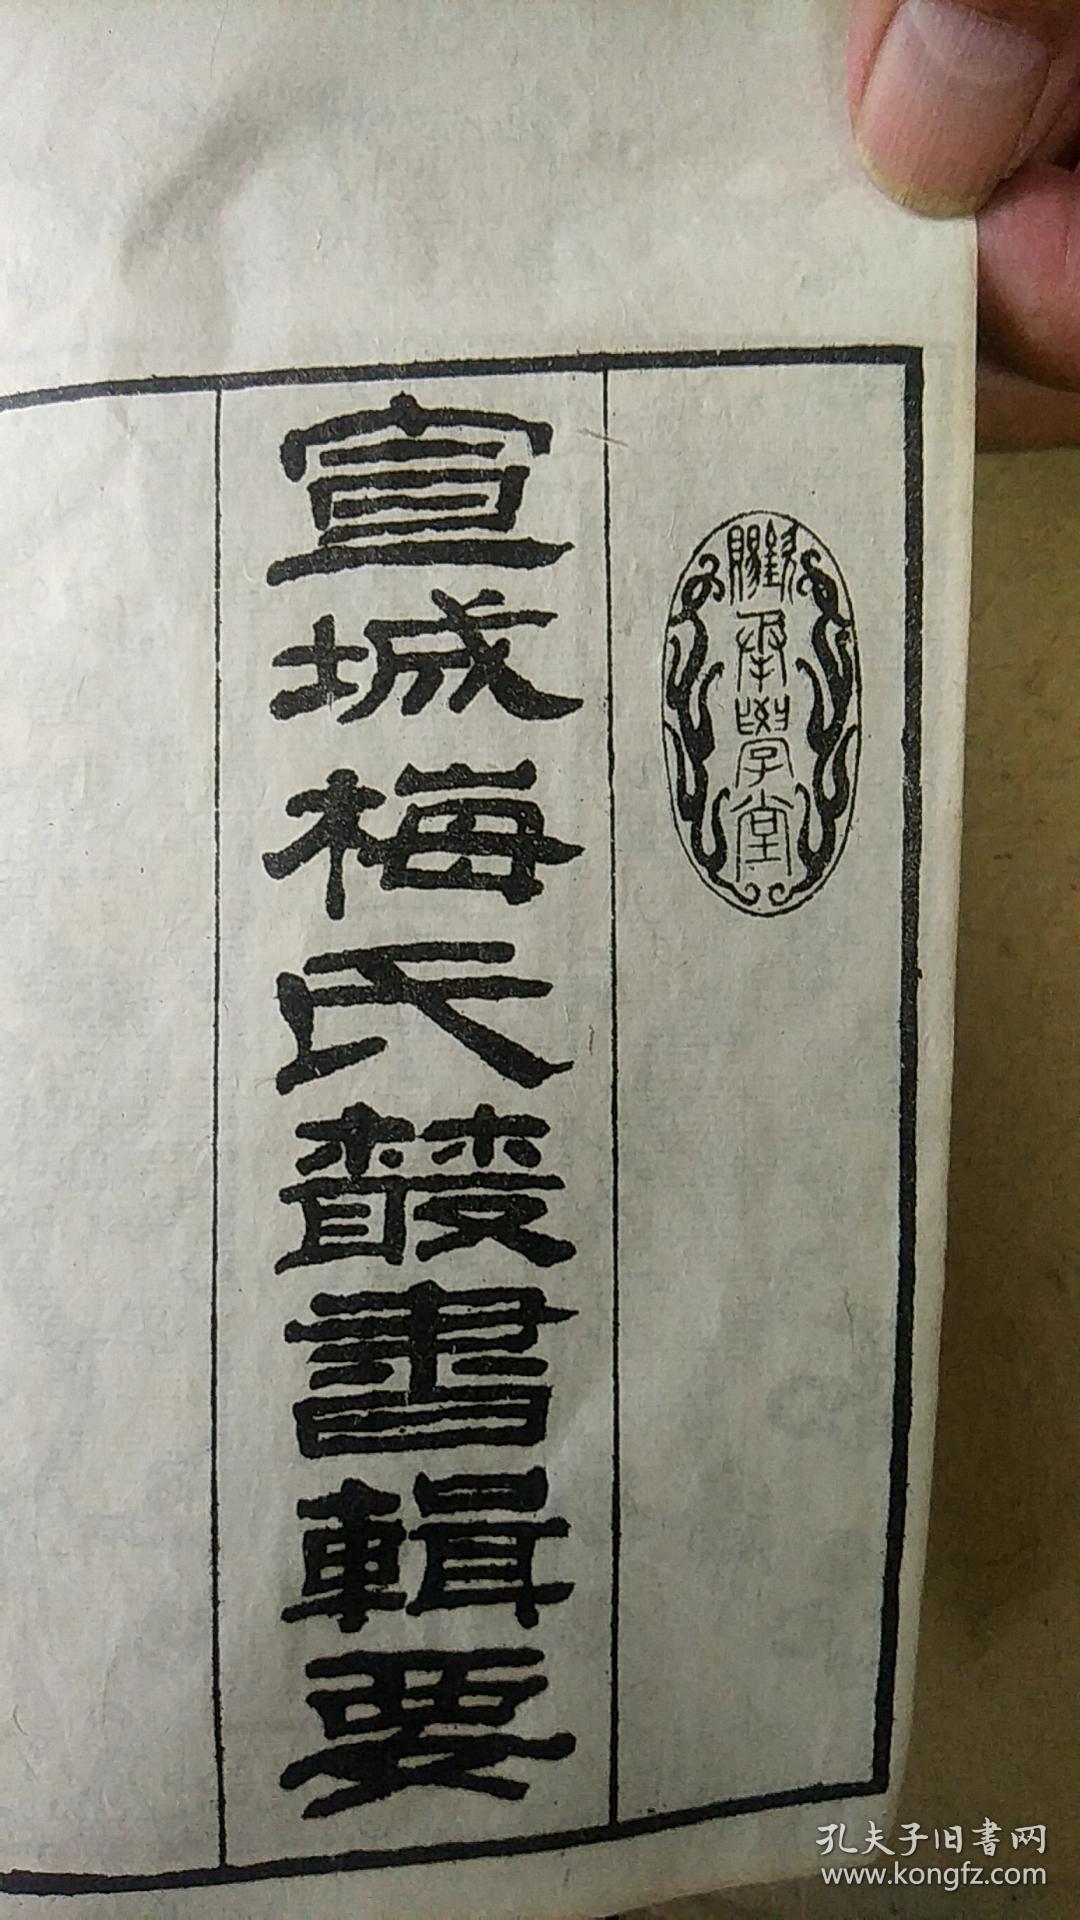 承學堂
宣城梅氏叢書輯要
孔夫子旧書网
www.kongfz.com